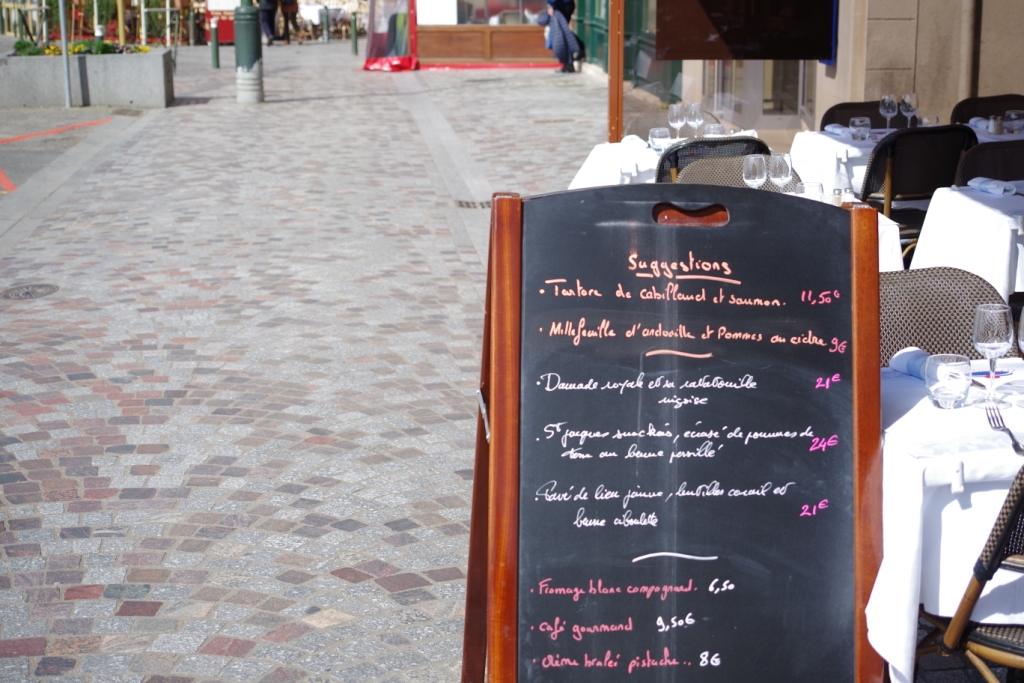 Suggestions
• Tartare de cabillaud et saumon. 11,50€
• Millefeuille d'andouille et Pommes au cidre 9€
• Daurade royale et sa ratatouille 21€
niçoise
. St jacques snackées, écrasé de pommes de 24€
terre au beurre persillé
. Pavé de lieu jaune, lentilles corail et 21€
beurre ciboulette
. Fromage blanc campagnard. 6,50
. Café gourmand 9,50€
. Crème brulée pistache.. 8€